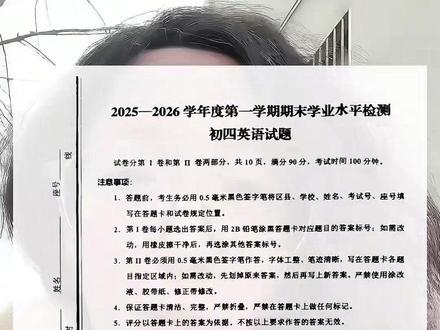 2025—2026 学年度第一学期期末学业水平检测
初四英语试题
试卷分第 I 卷和第 II 卷两部分，共 10 页，满分 90 分，考试时间 100 分钟。
注意事项：
1. 答题前，考生务必用 0.5 毫米黑色签字笔将区县、学校、姓名、考试号、座号填
写在答题卡和试卷规定位置。
2. 第 I 卷每小题选出答案后，用 2B 铅笔涂黑答题卡对应题目的答案标号；如需改
动，用橡皮擦干净后，再选涂其他答案标号。
3. 第 II 卷必须用 0.5 毫米黑色签字笔作答，字体工整、笔迹清晰，写在答题卡各题
目指定区域内；如需改动，先划掉原来答案，然后再写上新答案。严禁使用涂改
液、胶带纸、修正带修改。
4. 保证答题卡清洁、完整，严禁折叠，严禁在答题卡上做任何标记。
5. 评分以答题卡上的答案为依据，不按以上要求作答的答案无效。
线
座号
姓名
封